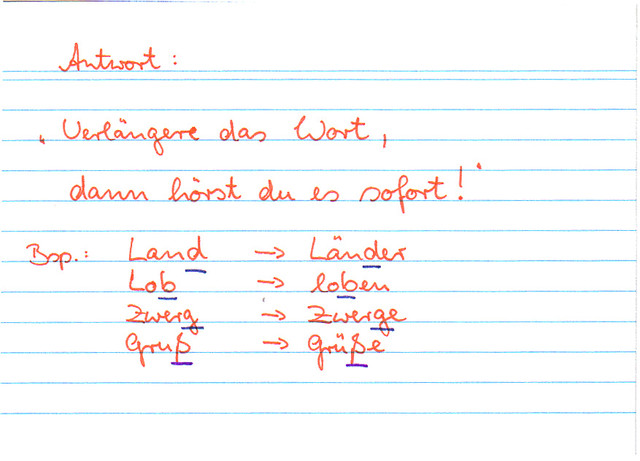 Antwort:
"Verlängere das Wort,
dann hörst du es sofort!"
Bsp.: Land → Länder
Lob → loben
Zwerg → Zwerge
Gruß → Grüße